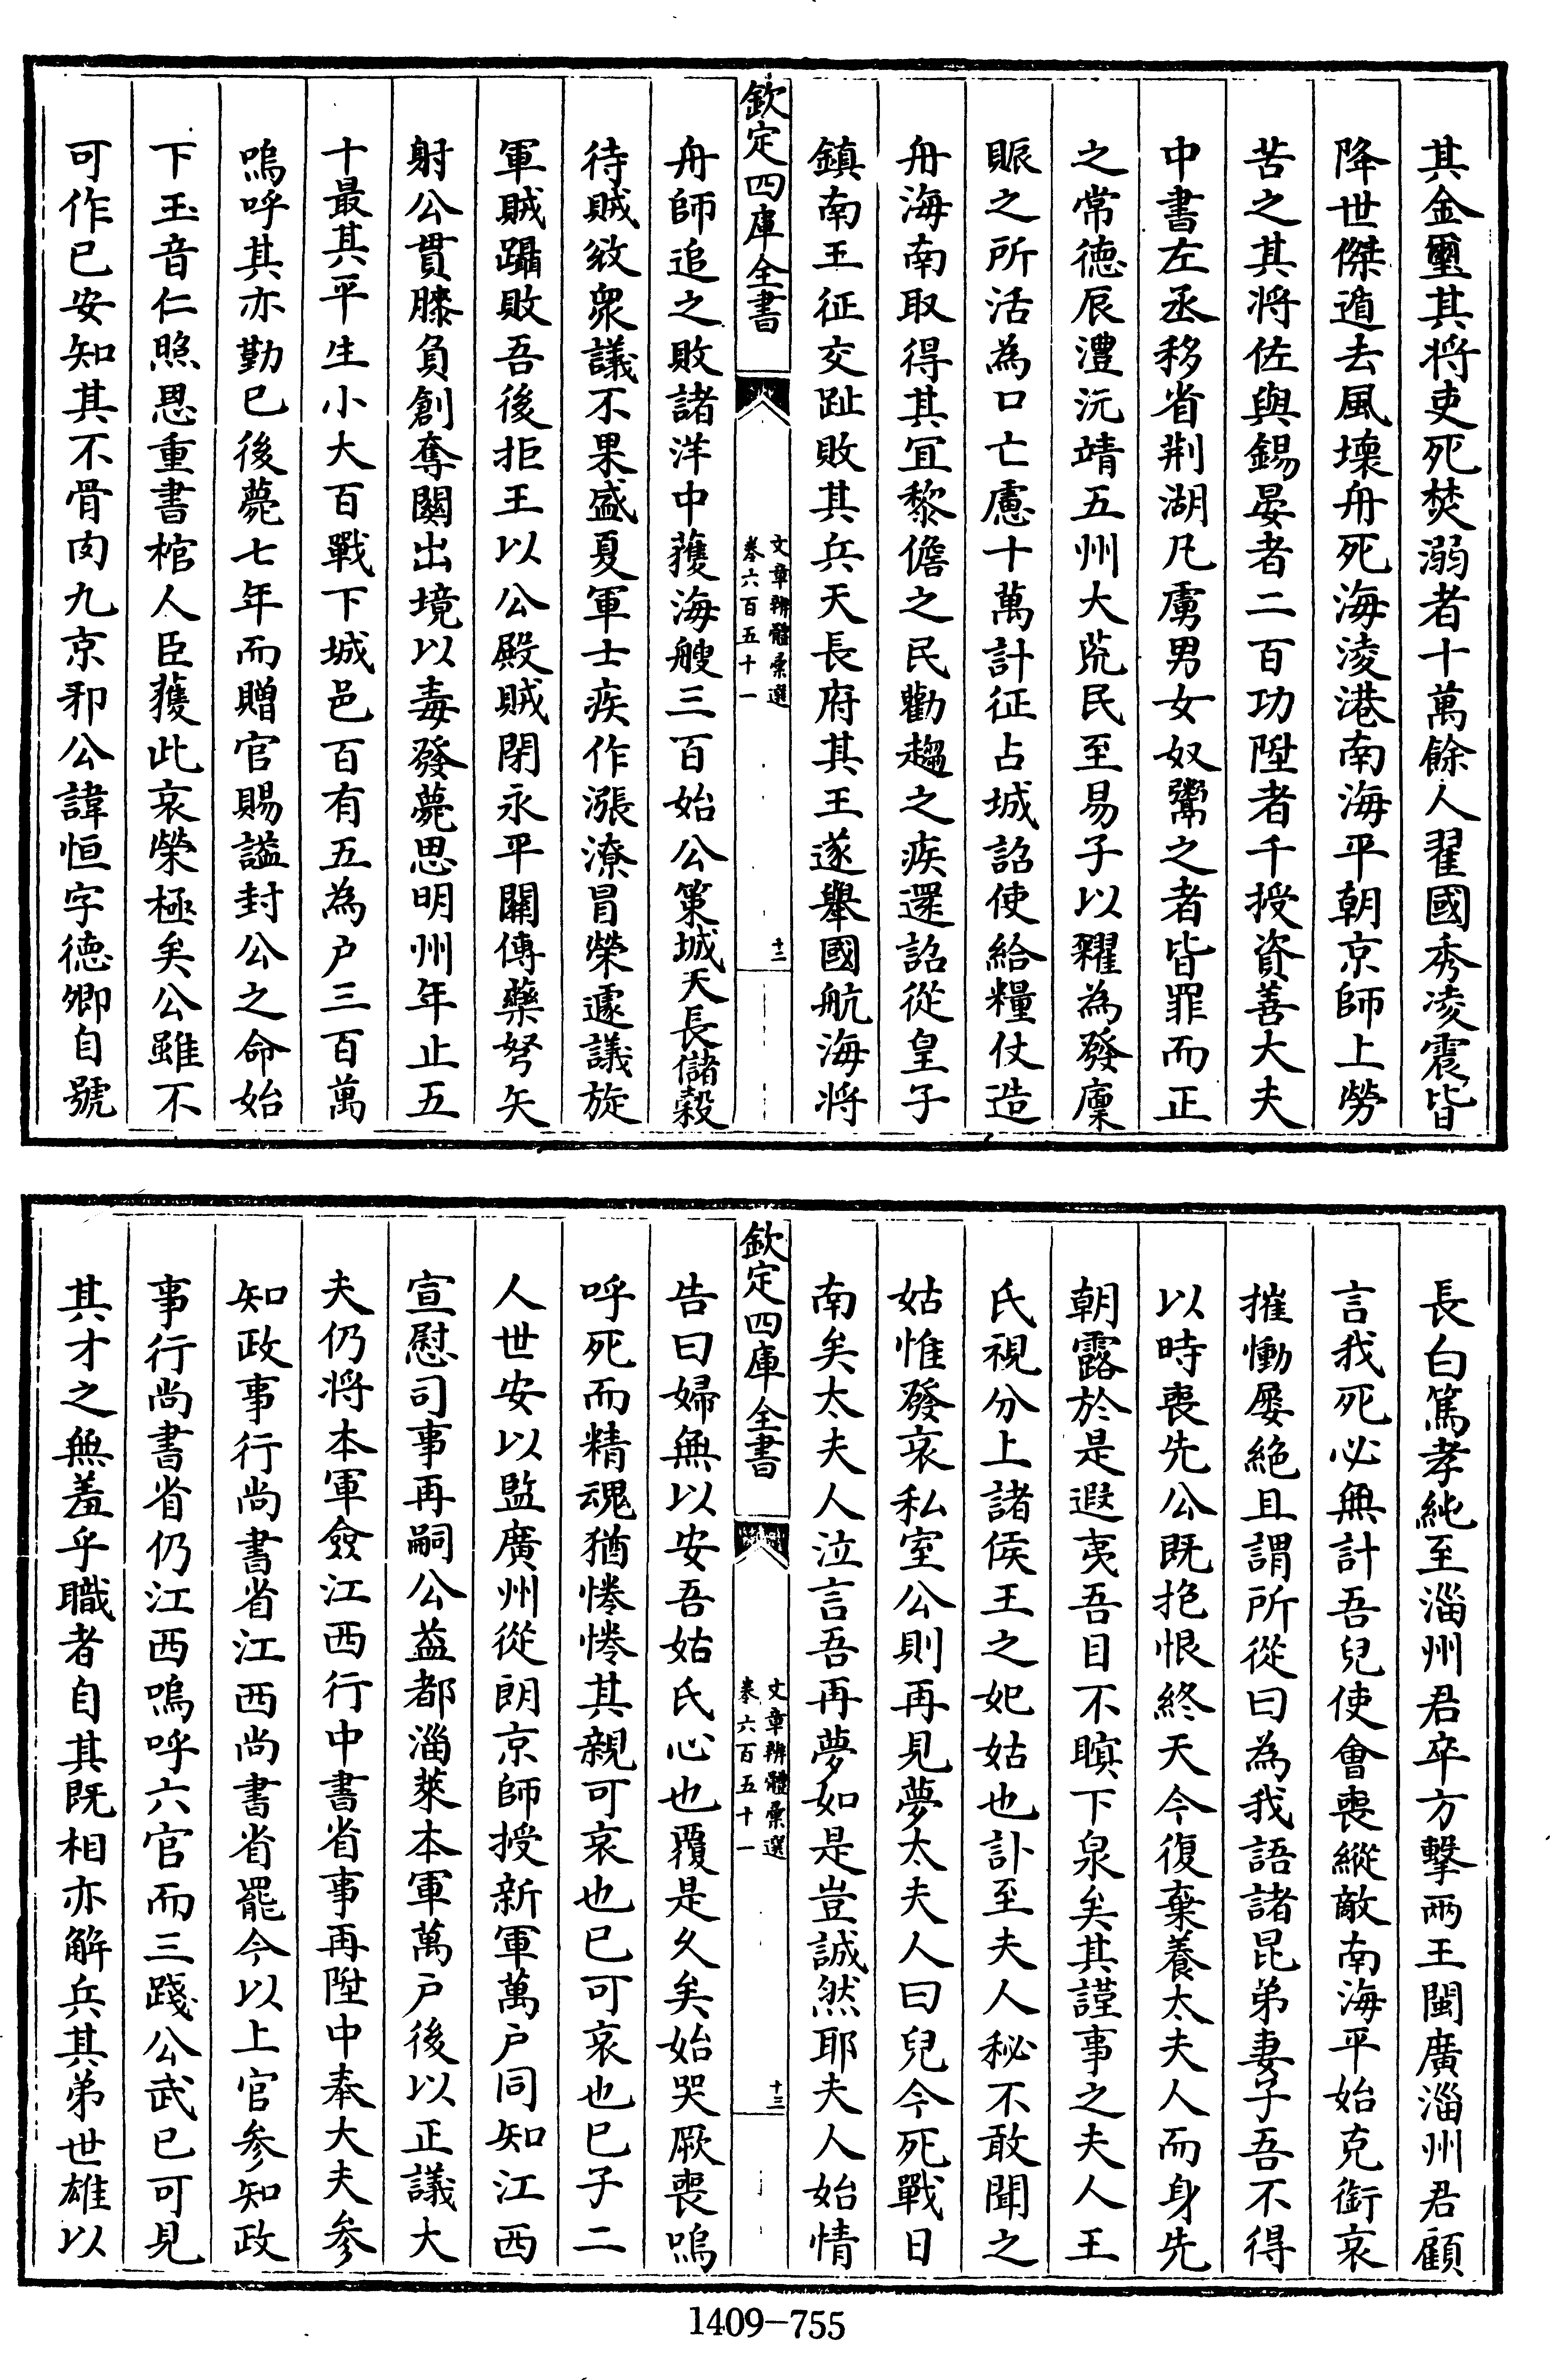 其金璽其將吏死焚溺者十萬餘人翟國秀凌震皆
降世傑遁去風壞舟死海淩港南海平朝京師上勞
苦之其將佐與錫晏者二百功陞者千授資善大夫
中書左丞移省荆湖凡虜男女奴鬻之者皆罪而正
之常德辰澧沅靖五州大荒民至易子以糴為發廩
賑之所活為口亡慮十萬計征占城詔使給糧仗造
舟海南取得其宜黎儋之民勸趨之疾還詔從皇子
鎮南王征交趾敗其兵天長府其王遂舉國航海將
欽定四庫全書
文章辨體彚選
卷六百五十一
十二
舟師追之敗諸洋中獲海艘三百始公策城天長儲穀
待賊紋衆議不果盛夏軍士疾作漲潦冒榮遽議旋
軍賊躡敗吾後拒王以公殿賊閉永平關傳藥弩矢
射公貫膝負創奪關出境以毒發薨思明州年止五
十最其平生小大百戰下城邑百有五為户三百萬
嗚呼其亦勤已後薨七年而贈官賜諡封公之命始
下玉音仁煦恩重書棺人臣獲此哀榮極矣公雖不
可作已安知其不骨肉九京邪公諱恒字德卿自號
長白篤孝純至淄州君卒方擊兩王閩廣淄州君顧
言我死必無計吾兒使會喪縱敵南海平始克銜哀
摧慟屢絶且謂所從曰為我語諸昆弟妻子吾不得
以時喪先公既抱恨終天今復棄養太夫人而身先
朝露於是遐夷吾目不瞑下泉矣其謹事之夫人王
氏視分上諸侯王之妃姑也訃至夫人秘不敢聞之
姑惟發哀私室公則再見夢太夫人曰兒今死戰日
南矣太夫人泣言吾再夢如是豈誠然耶夫人始情
欽定四庫全書
文章辨體彚選
卷六百五十一
十三
告曰婦無以安吾姑氏心也覆是久矣始哭厥喪嗚
呼死而精魂猶惓惓其親可哀也已可哀也已子二
人世安以監廣州從朗京師授新軍萬户同知江西
宣慰司事再嗣公益都淄萊本軍萬户後以正議大
夫仍將本軍僉江西行中書省事再陞中奉大夫參
知政事行尚書省江西尚書省罷今以上官參知政
事行尚書省仍江西嗚呼六官而三踐公武已可見
其才之無羞乎職者自其既相亦解兵其弟世雄以
1409-755